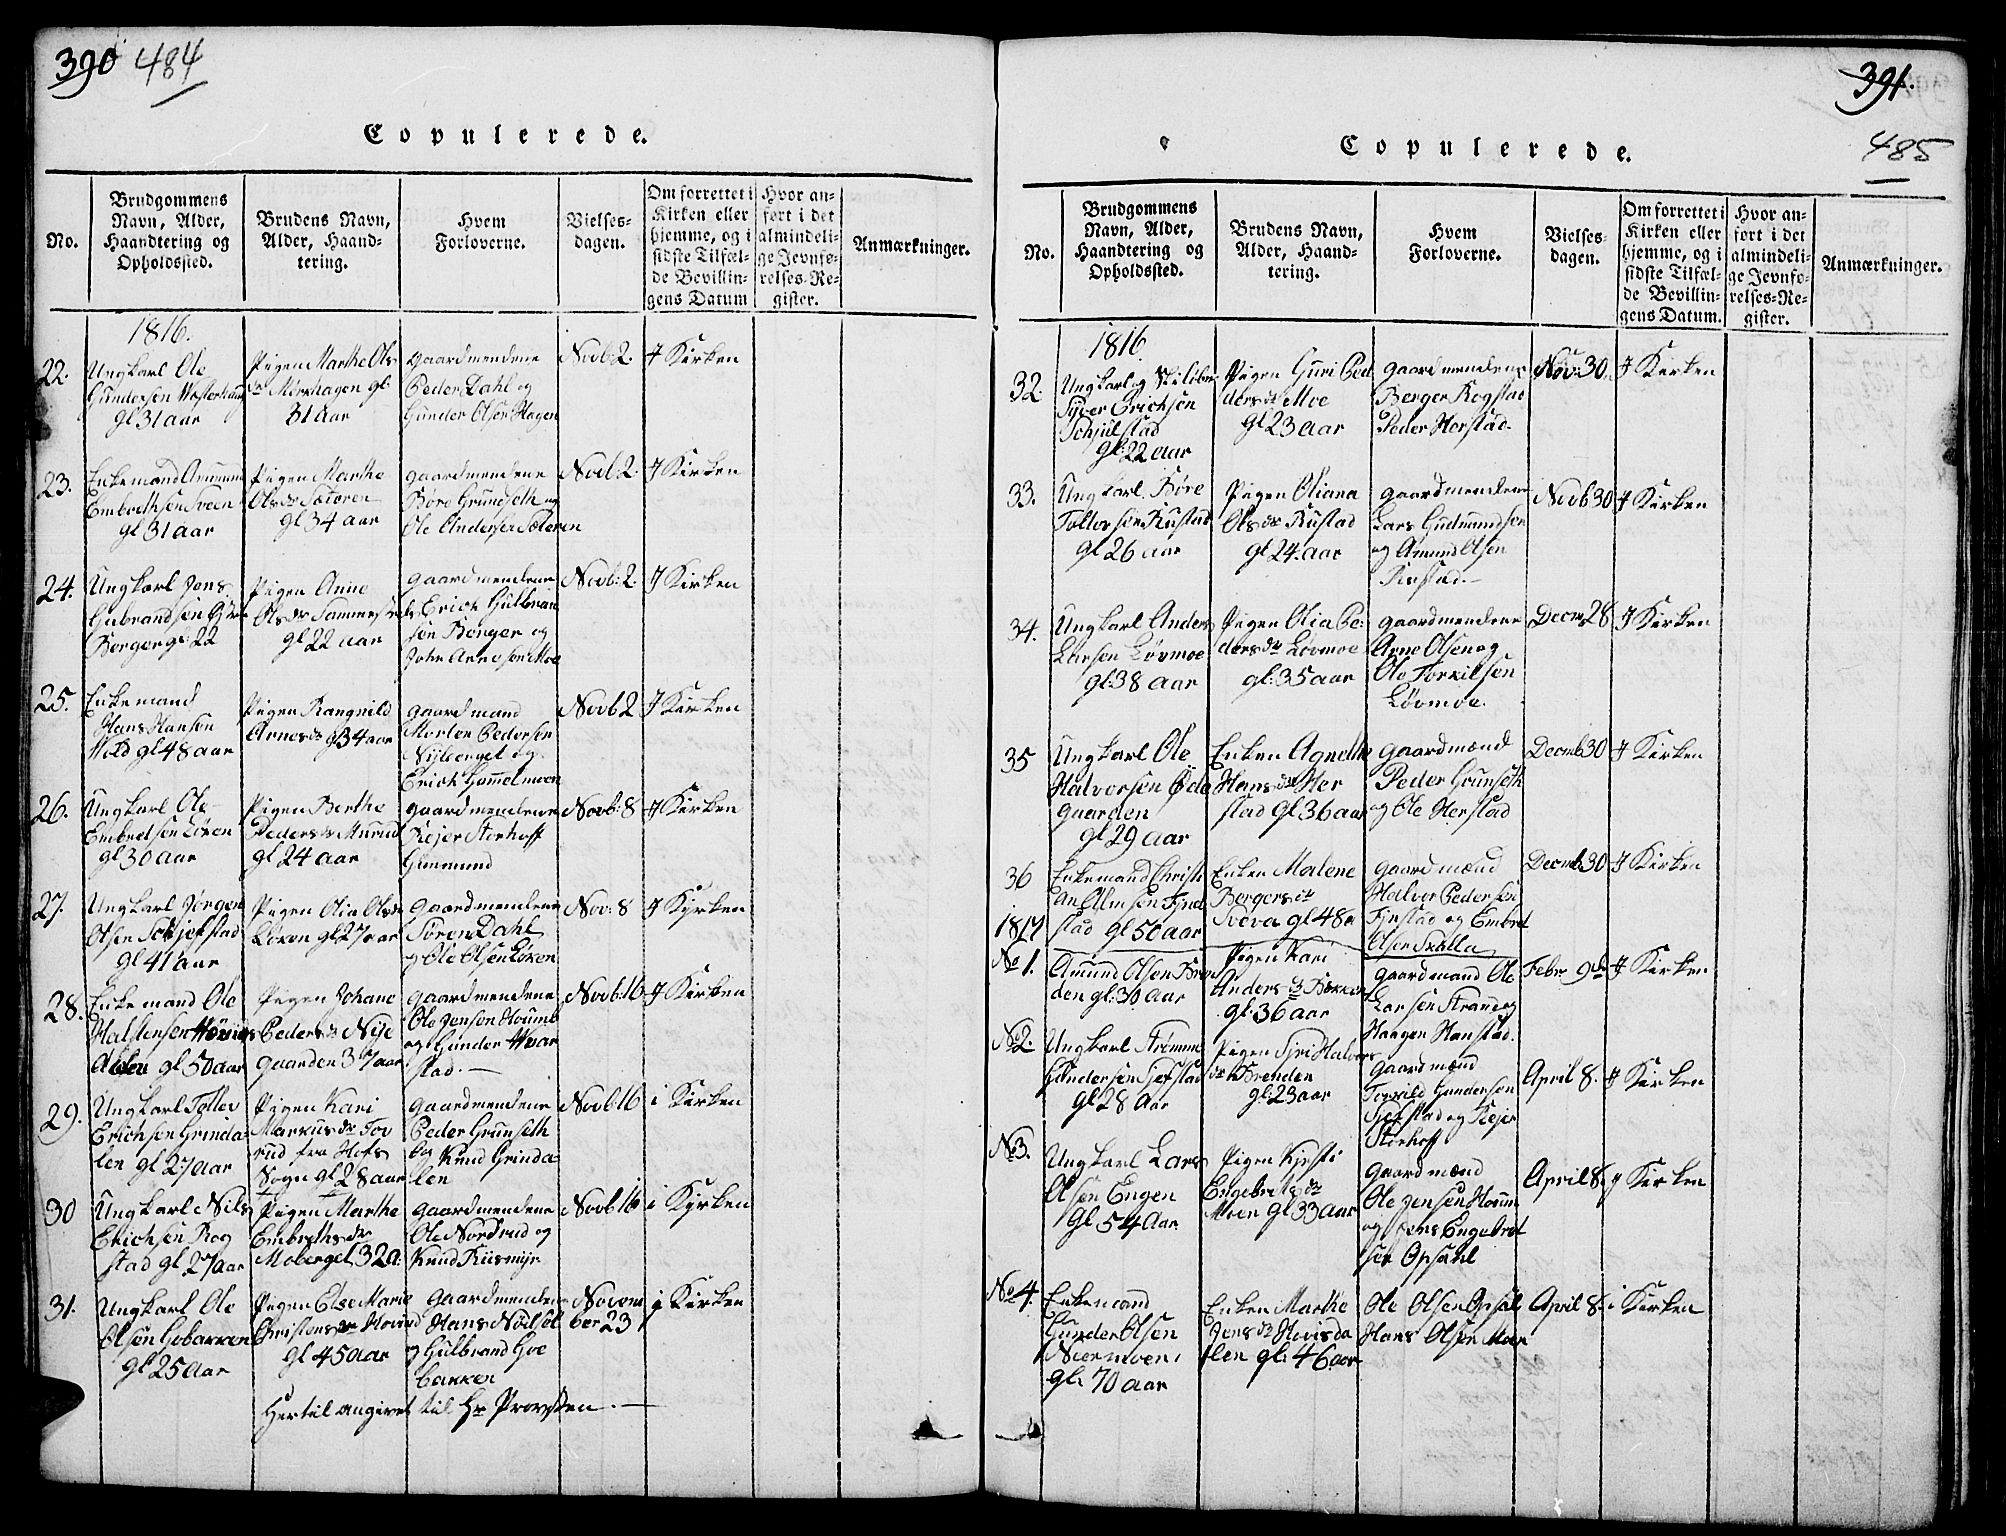 390 484
Copulerede.
No.
Brudgommens
Navn, Alder,
Haandtering og
Opholdssted.
Brudens Navn,
Alder, Haand-
tering.
Hvem
Forloverne.
Vielses-
dagen.
Om forrettet i
Kirken eller
hjemme, og i
sidste Tilfæl-
de Bevillin-
gens Datum
Hvor an-
ført i det
almindeli-
ge Jevnfø-
relses-Re-
gister.
Anmærkninger.
1816.
22.
Ungkarl Ole
Gundersen
gl 31 aar
Pigen Marthe Ols
dr Morhagen gl
31 aar
gaardmendene
Peder Dahl og
Gunder Olsen Hagen
Novb: 2.
J Kirken
23.
Enkemand Amund
Embrethsen Sveen
gl 31 aar
Pigen Marthe
Ols dr Sæteren
gl 34 aar
gaardmendene
Børe Grundseth og
Ole Andersen Sæteren
Novb: 2.
J Kirken
24.
Ungkarl Jens
Gubrandsen
Borger gl 22
Pigen Anne
Ols dr
gl 22 aar
gaardmendene
Erich Gulbran
sen Borger og
John Arnesen Moe
Novb: 2.
J Kirken
25.
Enkemand
Hans Hansen
gl 48 aar
Pigen Rangnild
Arnes dr gl 34 aar
gaardmand
Morten Pedersen
Nyberget og
Erich Gammelmoen
Novb 2
J Kirken
26.
Ungkarl Ole
Embretsen Løken
gl 30 aar
Pigen Berthe
Peders dr Murud
gl 24 aar
gaardmendene
Kejer Storhoff
Novb: 8
J Kirken
27.
Ungkarl Jørgen
Olsen Schjefstad
gl 41 aar
Pigen Olia Ols dr
Løken gl 27 aar
gaardmendene
Søren Dahl
og Ole Olsen Løken
Nov: 8
J Kyrken
28.
Enkemand Ole
Halstensen
dalen gl 50 aar
Pigen Johane
Peders dr Nye
gaarden 37 aar
gaardmendene
Ole Jensen
og Gunder
stad.
Novb: 16
J Kirken
29.
Ungkarl Tollev
Erichsen Grinda-
len gl 27 aar
Pigen Kari
Markus dr Tov
rud fra Hofs
Sogn gl 28 aar
gaardmendene
Peder Grunseth
og Knud Grinda
len
Novb 16
i Kirken
30
Ungkarl Nils
Erichsen Rog
stad gl 27 aar
Pigen Marthe
Embreths dr
Moberget 32 a:
gaardmendene
Ole Nordrud og
Knud Kiismyr
Novb 16
i Kyrken
31.
Ungkarl Ole
Olsen Gobakken
gl 25 aar
Pigen Else Marie
Christens dr
gl 45 aar
gaardmendene
Hans Nødsøl
og Gulbrand Goe
bakken
Novem
ber 23
i Kirken
Hertil angivet til Hr Provsten.
391.
485
Copulerede.
No.
Brudgommens
Navn, Alder,
Haandtering og
Opholdssted.
Brudens Navn,
Alder, Haand-
tering.
Hvem
Forloverne.
Vielses-
dagen.
Om forrettet i
Kirken eller
hjemme, og i
sidste Tilfæl-
de Bevillin-
gens Datum.
Hvor an-
ført i det
almindeli-
ge Jevnfø-
relses-Re-
gister.
Anmærkninger.
1816
32.
Ungkarl og Skiløber
Siver Erichsen
Schjulstad
gl: 22 aar
Pigen Guri Ped
ders dr Moe
gl 23 aar
gaardmendene
Berger Rogstad
Peder Herstad
Nov: 30
J Kirken
33.
Ungkarl Børe
Tollevsen Rustad
gl 26 aar
Pigen Oliana
Ols dr Rustad
gl 24 aar
gaardmendene
Lars Gudmundsen
og Amund Olsen
Rustad.
Novb 30
J Kirken
34.
Ungkarl Anders
Larsen Løvmoe
gl: 38 aar
Pigen Olia Pe-
ders dr Løvmoe
gl: 35 aar
gaardmendene
Arne Olsen og
Ole Torkilsen
Løvmoe.
Decm 28
J Kirken
35
Ungkarl Ole
Halvorsen Øde
gaarden
gl 29 aar
Enken Agnethe
Hans dr Her
stad gl 36 aar
gaardmænd
Peder Grunseth
og Ole Herstad
Decmb 30
J Kirken
36
Enkemand Christi
an Olmsen Fynd
stad gl 50 aar
Enken Malene
Bergers dr
Svera gl 48 a
gaardmænd
Halvor Pedersen
Fynstad og Embret
Olsen Skalla
Decmb 30
J Kirken
1817
No 1.
Amund Olsen Bren
den gl: 30 aar
Pigen Kari
Anders dr Bækken
gl: 36 aar
gaardmand Ole
Larsen Strand og
Haagen Hanstad.
Febr 9de
J Kirken
No 2.
Ungkarl Strømm
Gundersen Sjefstad
gl 28 Aar
Pigen Siri Halvors
dr Brenden
gl: 23 aar
gaardmænd
Torkild Gundersen
Sjefstad og Kejer
Storhoff
April 8.
J Kirken
No 3.
Ungkarl Lars
Olsen Engen
gl 54 Aar
Pigen Kjersti
Engebrets dr
Moen gl 33 aar
gaardmænd
Ole Jensen
og Jens Engebret
sen Opsahl
April 8.
J Kirken
No 4.
Enkemand
Gunder Olsen
Neermoen
gl. 70 aar
Enken Marthe
Jens dr Hovisda
len gl. 46 aar
Ole Olsen Opsal
Hans Olsen Moen
April 8.
i Kirken